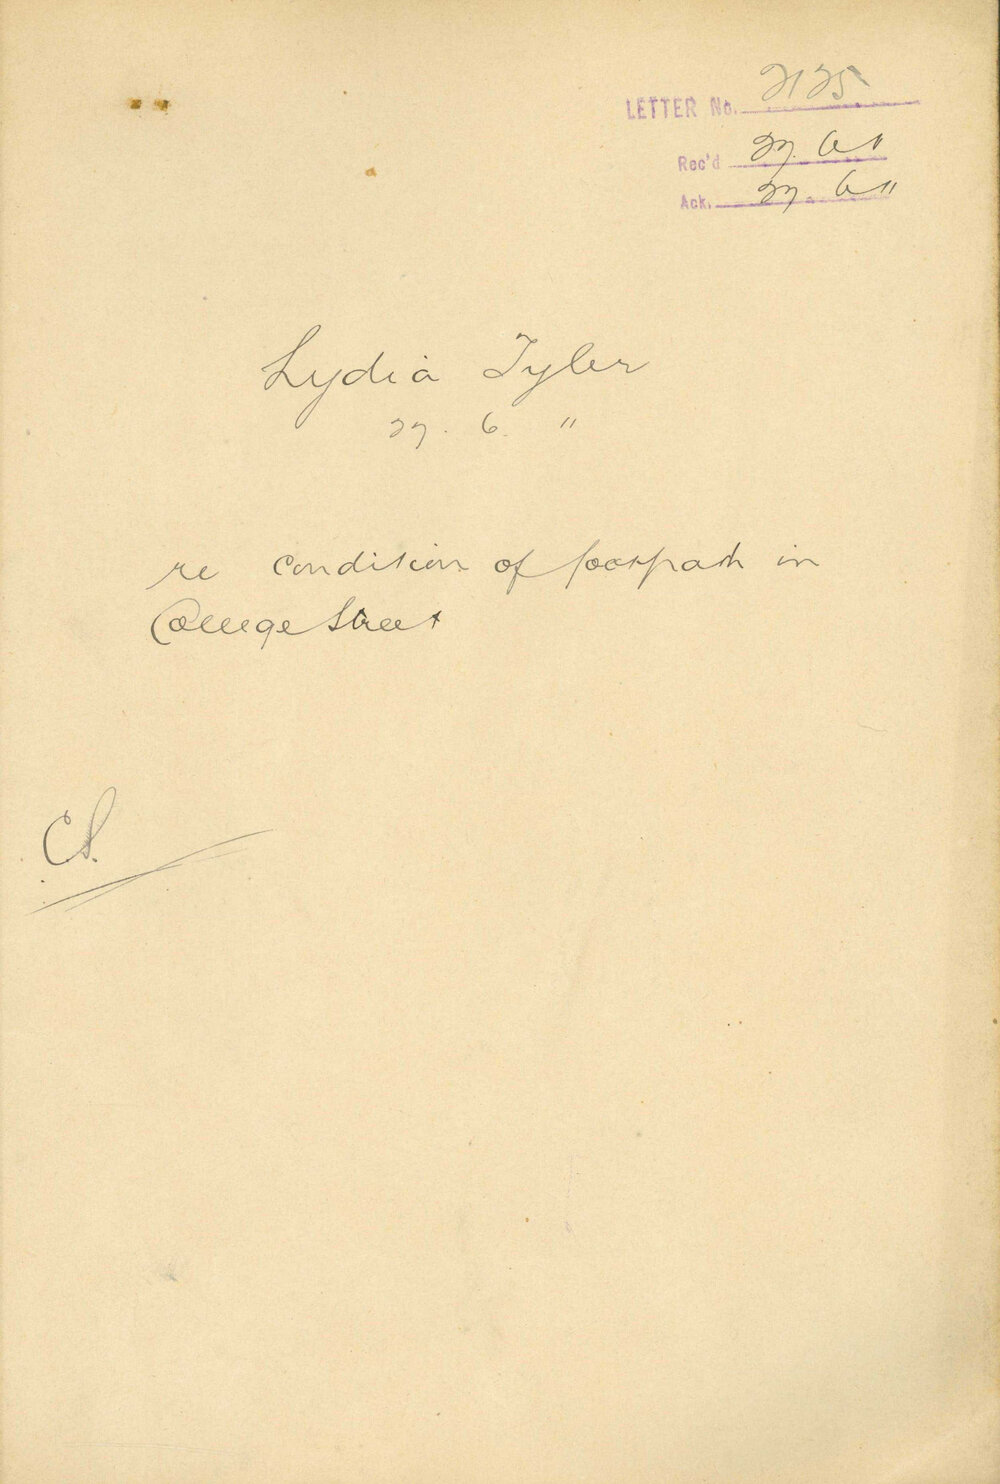 LETTER No. 2125
Rec'd 27. 6 11
Ack. 27. 6 11
Lydia Tyler
27. 6. 11
re condition of footpath in
College Street
C.S.